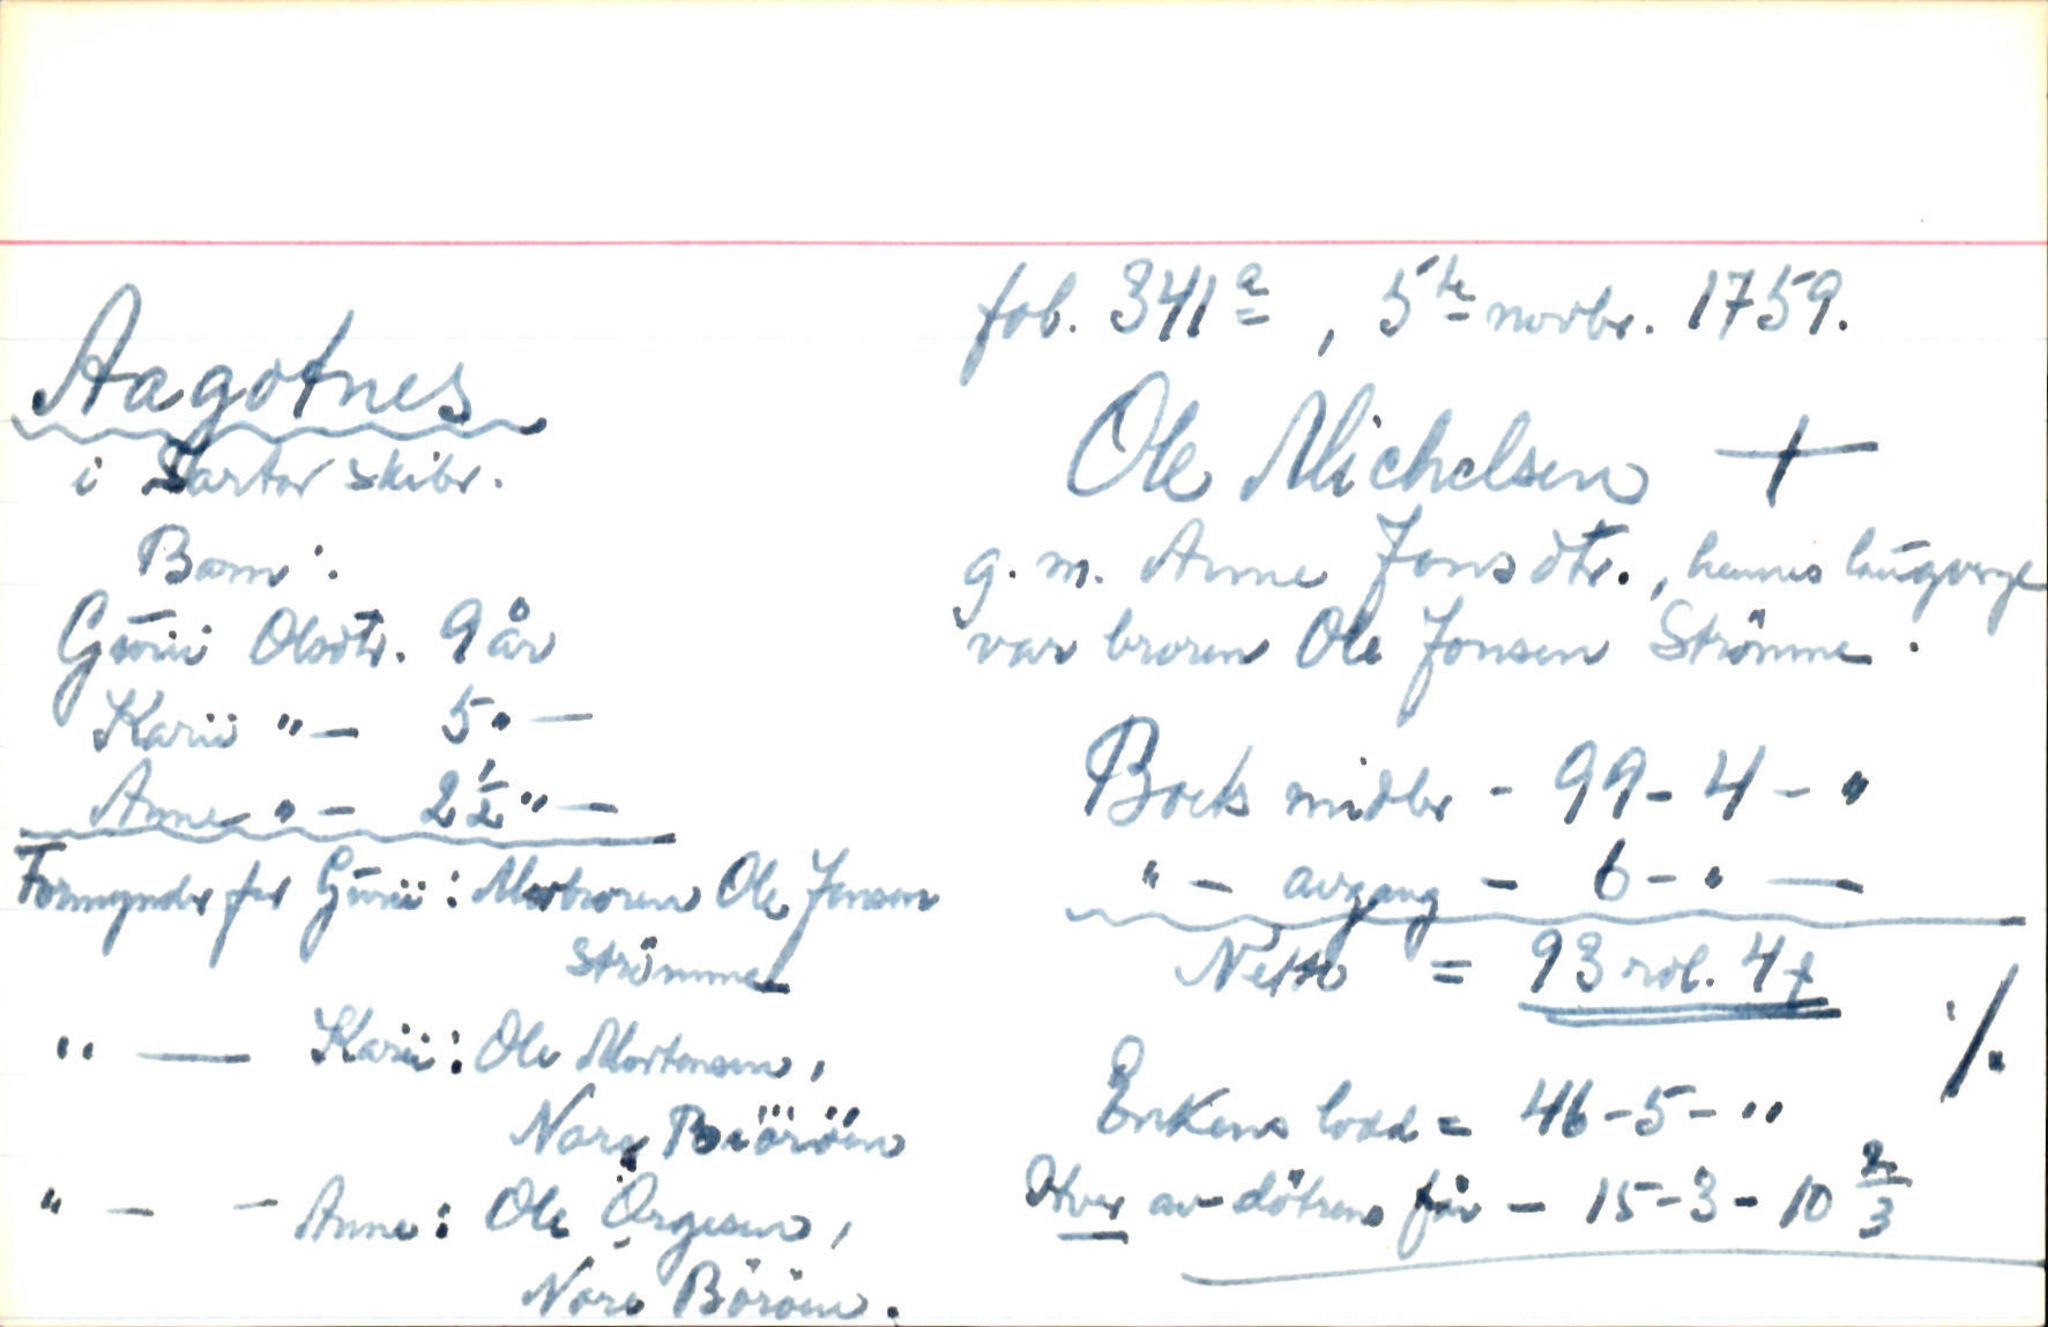 Aagotnes
i Sartor skibr.
Barn:
Gurii Olsdtr. 9 år
Karii " — 5 " —
Anne " — 2 1/2 " —
Formynder for Gurii: Morbroren Ole Jonsen
Strömme
" — Karii: Ole Mortensen,
Nore Biöröen
" — — Anne: Ole Örgesen,
Nore Böröen.
fol. 341 a, 5te novbr. 1759.
Ole Michelsen +
g. m. Anne Jonsdtr., hennes laugverge
var broren Ole Jonsen Strömme.
Boets midler - 99 - 4 - "
" — avgang — 6 - " —
Netto = 93 rdl. 4
Enkens lodd = 46 - 5 - "
Hver av dötrene får — 15 - 3 - 10 2/3